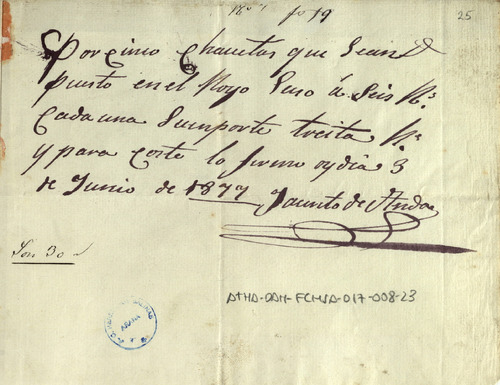 fo 19
25
Por cinco Chavetas que sean
puesto en el Royo Suso á Seis Rs
Cada una Suimporte treita Rs
y para coste lo firmo oy dia 3
de Junio de 1877 Jacinto de Anda
Son 30
ATHA-DAH-FCHSA-017-008-23